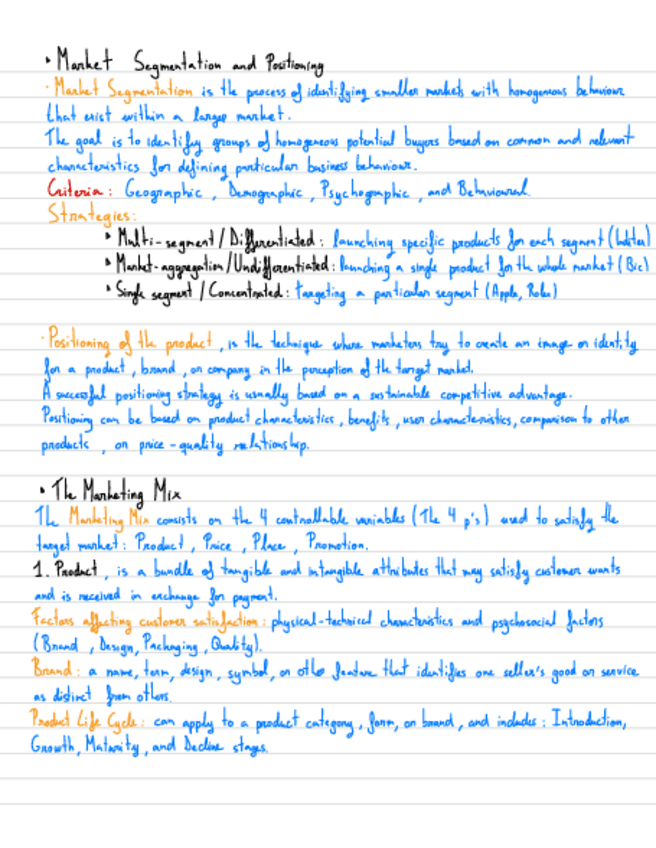 • Market Segmentation and Positioning
· Market Segmentation is the process of identifying smaller markets with homogenous behaviour
that exist within a larger market.
The goal is to identify groups of homogeneous potential buyers based on common and relevant
characteristics for defining particular business behaviour.
Criteria: Geographic, Demographic, Psychographic, and Behavioural.
Strategies:
• Multi-segment/Differentiated: launching specific products for each segment
• Market-aggregation/Undifferentiated: launching a single product for the whole market (Bic)
• Single segment/Concentrated: targeting a particular segment (Apple, Rolex)
· Positioning of the product, is the technique where marketers try to create an image or identity
for a product, brand, or company in the perception of the target market.
A successful positioning strategy is usually based on a sustainable competitive advantage.
Positioning can be based on product characteristics, benefits, user characteristics, comparison to other
products, or price-quality relationship.
• The Marketing Mix
The Marketing Mix consists on the 4 controllable variables (The 4 p's) used to satisfy the
target market: Product, Price, Place, Promotion.
1. Product, is a bundle of tangible and intangible attributes that may satisfy customer wants
and is received in exchange for payment.
Factors affecting customer satisfaction: physical-technical characteristics and psychosocial factors
(Brand, Design, Packaging, Quality).
Brand: a name, term, design, symbol, or other feature that identifies one seller's good or service
as distinct from others.
Product Life Cycle: can apply to a product category, form, or brand, and includes: Introduction,
Growth, Maturity, and Decline stages.